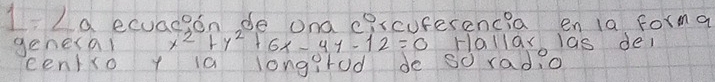 1. La ecuación de una circuferencia en la forma
general x² + y² + 6x - 4y - 12 = 0 Hallar las del
centro y la longitud de su radio